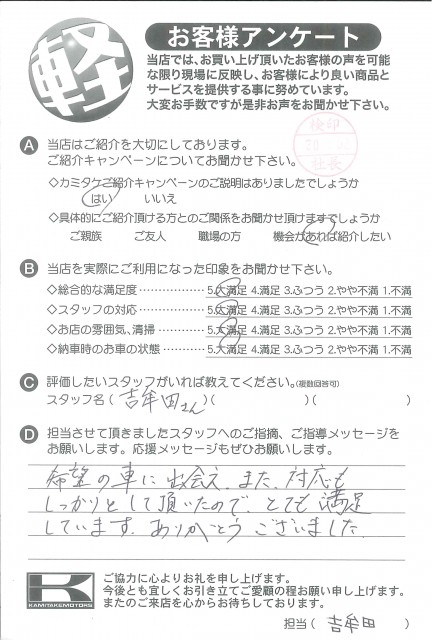 軽
お客様アンケート
当店では、お買い上げ頂いたお客様の声を可能
な限り現場に反映し、お客様により良い商品と
サービスを提供する事に努めています。
大変お手数ですが是非お声をお聞かせ下さい。
検印
社長
A 当店はご紹介を大切にしております。
ご紹介キャンペーンについてお聞かせ下さい。
◇カミタケご紹介キャンペーンのご説明はありましたでしょうか
はい いいえ
◇具体的にご紹介頂ける方とのご関係をお聞かせ頂けますでしょうか
ご親族 ご友人 職場の方 機会があれば紹介したい
B 当店を実際にご利用になった印象をお聞かせ下さい。
◇総合的な満足度 ……………… 5.大満足 4.満足 3.ふつう 2.やや不満 1.不満
◇スタッフの対応 ……………… 5.大満足 4.満足 3.ふつう 2.やや不満 1.不満
◇お店の雰囲気、清掃 ………… 5.大満足 4.満足 3.ふつう 2.やや不満 1.不満
◇納車時のお車の状態 ………… 5.大満足 4.満足 3.ふつう 2.やや不満 1.不満
C 評価したいスタッフがいれば教えてください。(複数回答可)
スタッフ名( 吉牟田さん )( )( )
D 担当させて頂きましたスタッフへのご指摘、ご指導メッセージを
お願いします。応援メッセージもぜひお願いします。
希望の車に出会え、また、対応も
しっかりとして頂いたので、とても満足
しています。ありがとうございました。
K
KAMITAKEMOTORS
ご協力に心よりお礼を申し上げます。
今後とも宜しくお引き立てご愛顧の程お願い申し上げます。
またのご来店を心からお待ちしております。
担当( 吉牟田 )